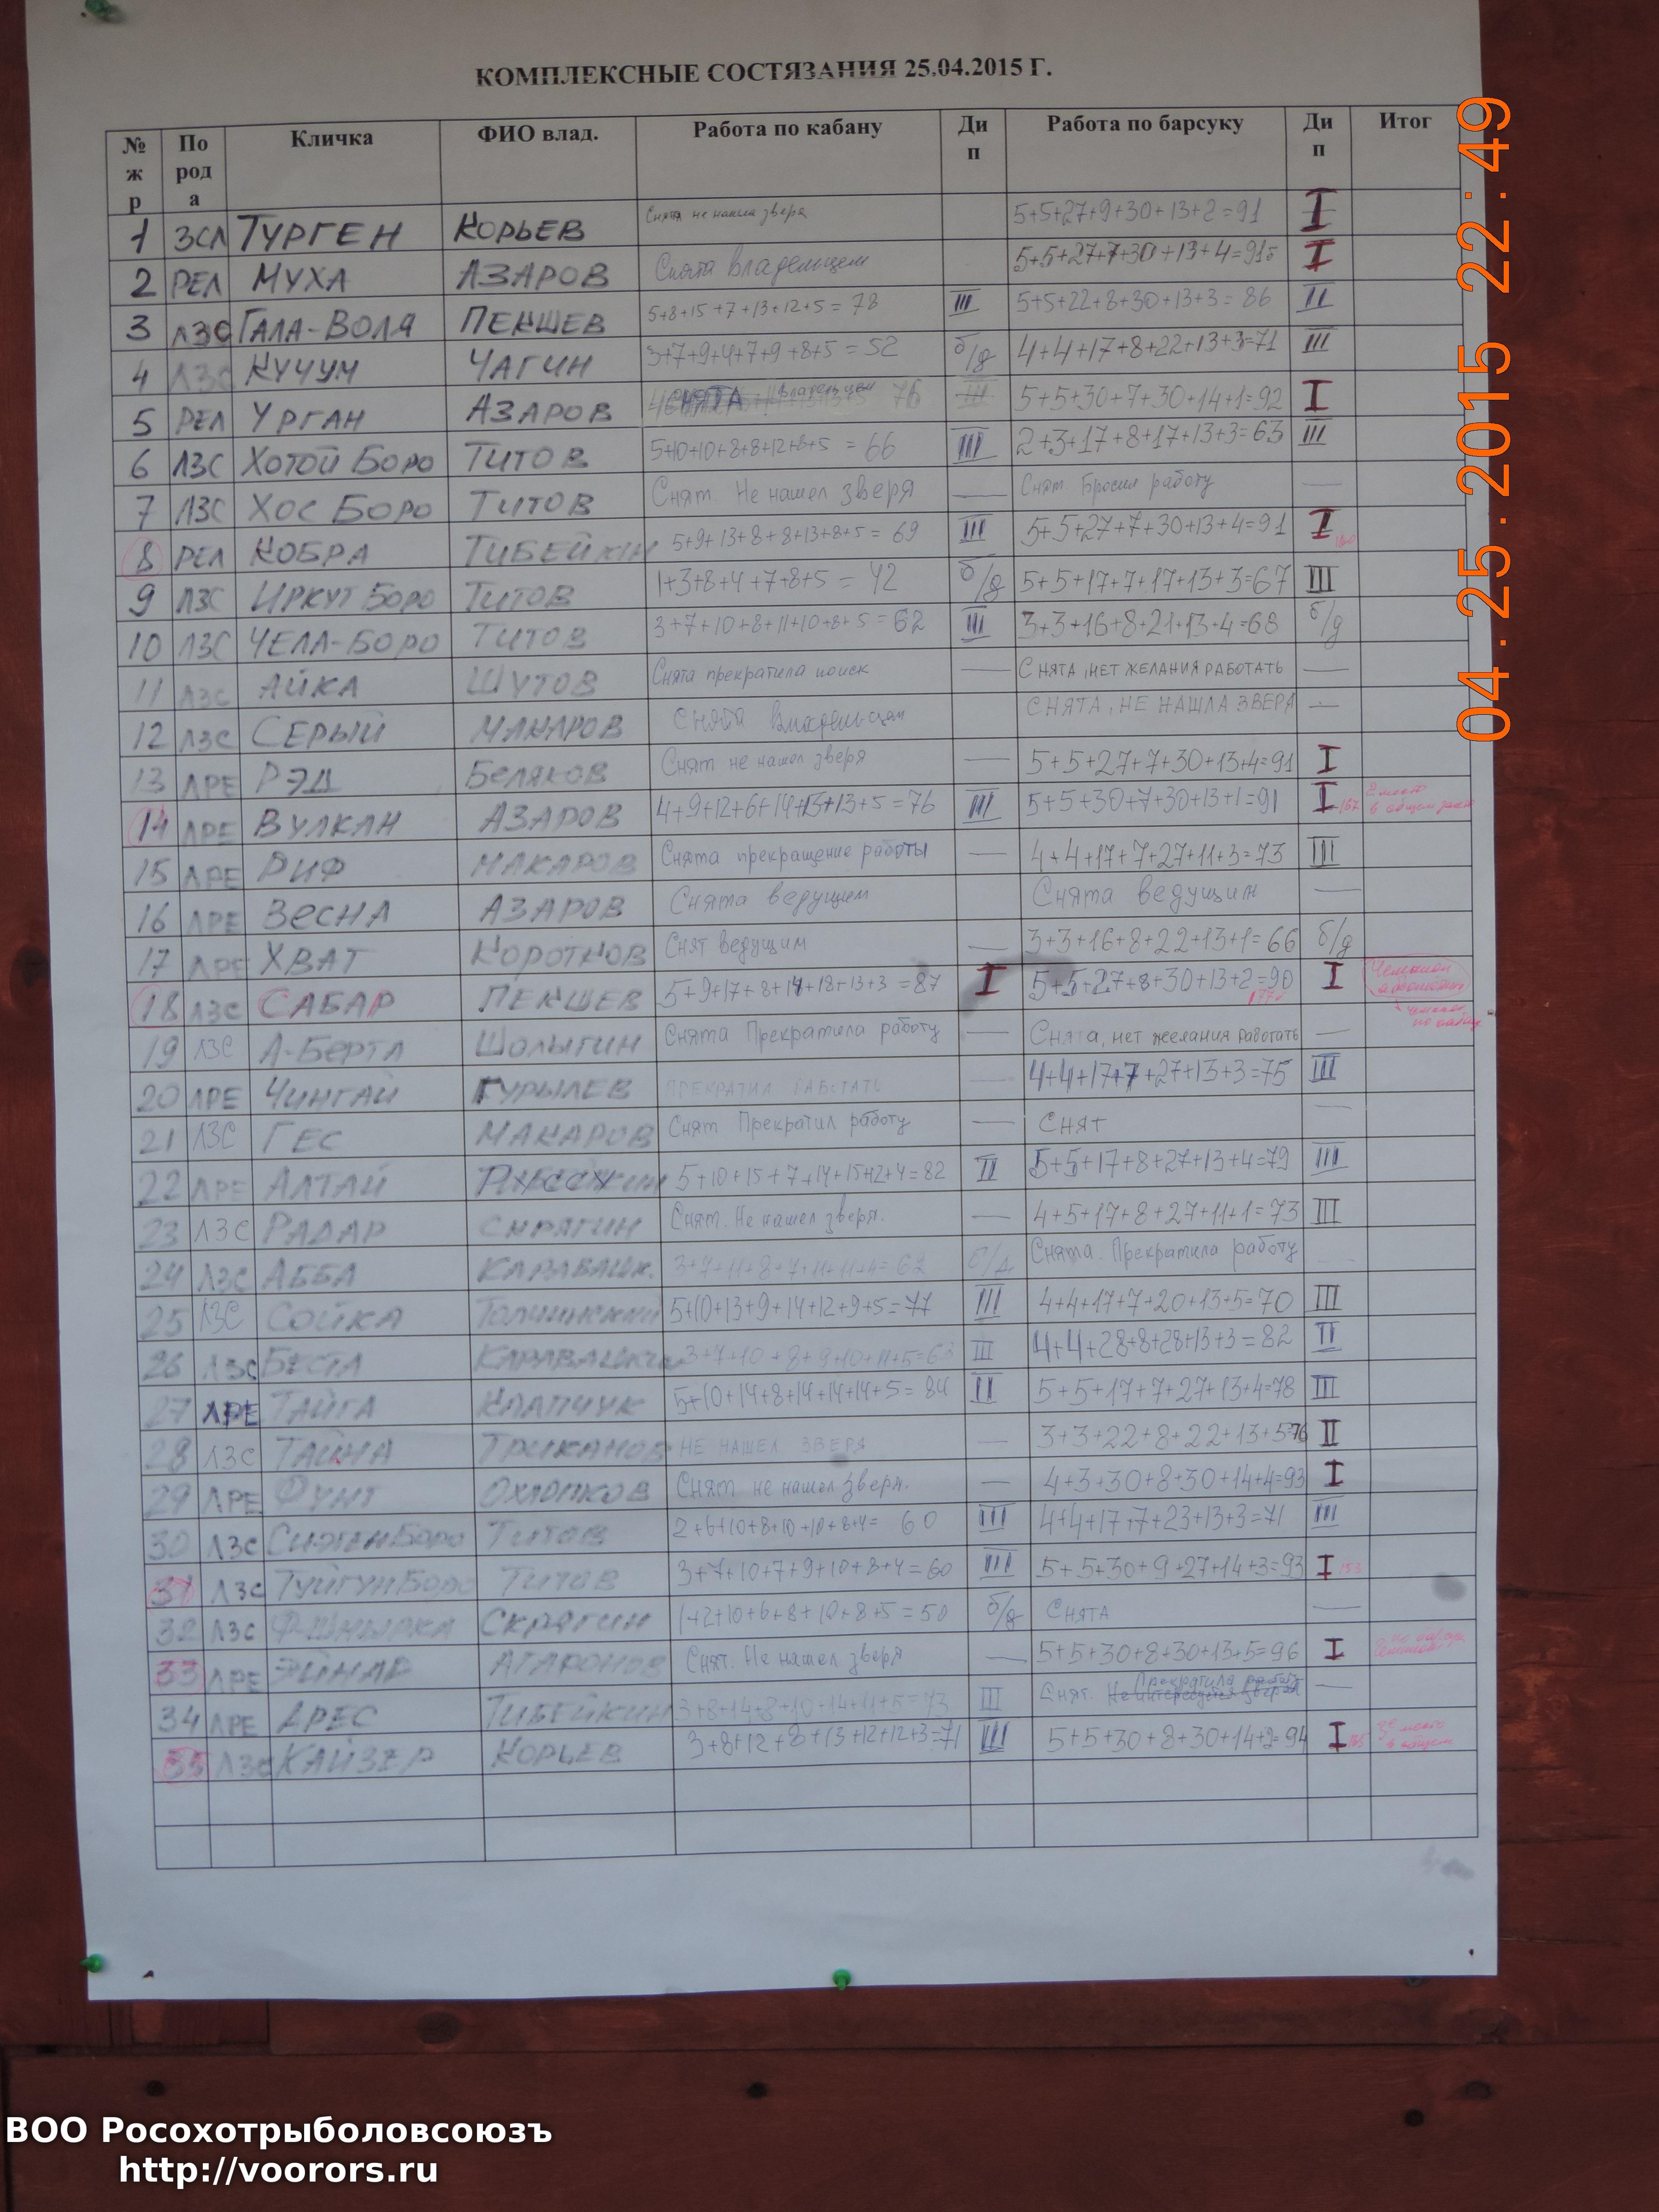 КОМПЛЕКСНЫЕ СОСТЯЗАНИЯ 25.04.2015 Г.
№ ж р По род а Кличка ФИО влад. Работа по кабану Ди п Работа по барсуку Ди п Итог
1 ЗСЛ ТУРГЕН КОРЬЕВ Снята не нашла зверя 5+5+27+9+30+13+2=91 I
2 РЕЛ МУХА АЗАРОВ Снята владельцем 5+5+27+7+30+13+4=91 I
3 ЛЗС ГАЛА-ВОЛЯ ПЕКШЕВ 5+8+15+7+13+12+5=78 III 5+5+22+8+30+13+3=86 II
4 ЛЗС КУЧУМ ЧАГИН 3+7+9+4+7+9+8+5=52 б/д 4+4+17+8+22+13+3=71 III
5 РЕЛ УРГАН АЗАРОВ СНЯТА владельцем 76 III 5+5+30+7+30+14+1=92 I
6 ЛЗС ХОТОЙ БОРО ТИТОВ 5+10+10+8+8+12+8+5=66 III 2+3+17+8+17+13+3=63 III
7 ЛЗС ХОС БОРО ТИТОВ Снят. Не нашел зверя — Снят. Бросил работу —
8 РЕЛ КОБРА ТИБЕЙКИН 5+9+13+8+8+13+8+5=69 III 5+5+27+7+30+13+4=91 I 160
9 ЛЗС ИРКУТ БОРО ТИТОВ 1+3+8+4+7+8+5=42 б/д 5+5+17+7+17+13+3=67 III
10 ЛЗС ЧЕЛА-БОРО ТИТОВ 3+7+10+8+11+10+8+5=62 III 3+3+16+8+21+13+4=68 б/д
11 ЛЗС АЙКА ШУТОВ Снята прекратила поиск — СНЯТА, НЕТ ЖЕЛАНИЯ РАБОТАТЬ —
12 ЛЗС СЕРЫЙ МАКАРОВ Снята владельцем СНЯТА, НЕ НАШЛА ЗВЕРЯ —
13 ЛРЕ РЭД БЕЛЯКОВ Снят не нашел зверя — 5+5+27+7+30+13+4=91 I
14 ЛРЕ ВУЛКАН АЗАРОВ 4+9+12+6+14+13+13+5=76 III 5+5+30+7+30+13+1=91 I 167 2 место в общем
15 ЛРЕ РИФ МАКАРОВ Снята прекращение работы — 4+4+17+7+27+11+3=73 III
16 ЛРЕ ВЕСНА АЗАРОВ Снята ведущем Снята ведущим —
17 ЛРЕ ХВАТ КОРОТКОВ Снят ведущим — 3+3+16+8+22+13+1=66 б/д
18 ЛЗС САБАР ПЕКШЕВ 5+9+17+8+14+18+13+3=87 I 5+5+27+8+30+13+2=90 177 I Чемпион
19 ЛЗС А-БЕРТА ШОЛЫГИН Снята Прекратила работу — Снята, нет желания работать —
20 ЛРЕ ЧИНГАЙ ГУРЫЛЕВ ПРЕКРАТИЛ РАБОТАТЬ — 4+4+17+7+27+13+3=75 III
21 ЛЗС ГЕС МАКАРОВ Снят Прекратил работу — СНЯТ —
22 ЛРЕ АЛТАЙ 5+10+15+7+14+15+12+4=82 II 5+5+17+8+27+13+4=79 III
23 ЛЗС РАДАР СКРЯГИН Снят. Не нашел зверя. — 4+5+17+8+27+11+1=73 III
24 ЛЗС АББА КАРАВАШК. 3+7+11+8+7+11+11+4=62 б/д Снята. Прекратила работу —
25 ЛЗС СОЙКА 5+10+13+9+14+12+9+5=77 III 4+4+17+7+20+13+5=70 III
26 ЛЗС БЕСТА КАРАВАШКИН 3+7+10+8+9+10+11+5=63 III 4+4+28+8+28+13+3=82 II
27 ЛРЕ ТАЙГА КЛАПЧУК 5+10+14+8+14+14+14+5=84 II 5+5+17+7+27+13+4=78 III
28 ЛЗС ТАЙНА ТРУКАНОВ НЕ НАШЕЛ ЗВЕРЯ — 3+3+22+8+22+13+5=76 II
29 ЛРЕ ФУНТ ОХЛОПКОВ Снят не нашел зверя. — 4+3+30+8+30+14+4=93 I
30 ЛЗС БОРО ТИТОВ 2+6+10+8+10+10+8+4=60 III 4+4+17+7+23+13+3=71 III
31 ЛЗС ТУЙГУН БОРО ТИТОВ 3+7+10+7+9+10+8+4=60 III 5+5+30+9+27+14+3=93 I 153
32 ЛЗС СКРЯГИН 1+2+10+6+8+10+8+5=50 б/д СНЯТА —
33 ЛРЕ ЭЙНАР АГАРОНОВ Снят. Не нашел зверя — 5+5+30+8+30+13+5=96 I
34 ЛРЕ АРЕС ТИБЕЙКИН 3+8+14+8+10+14+11+5=73 III Снят. Не интересуется зверем Прекратила работу —
35 ЛЗС КАЙЗЕР КОРЬЕВ 3+8+12+8+13+12+12+3=71 III 5+5+30+8+30+14+2=94 I 165 3е место в общем
04.25.2015 22:49
ВОО Росохотрыболовсоюзъ
http://voorors.ru